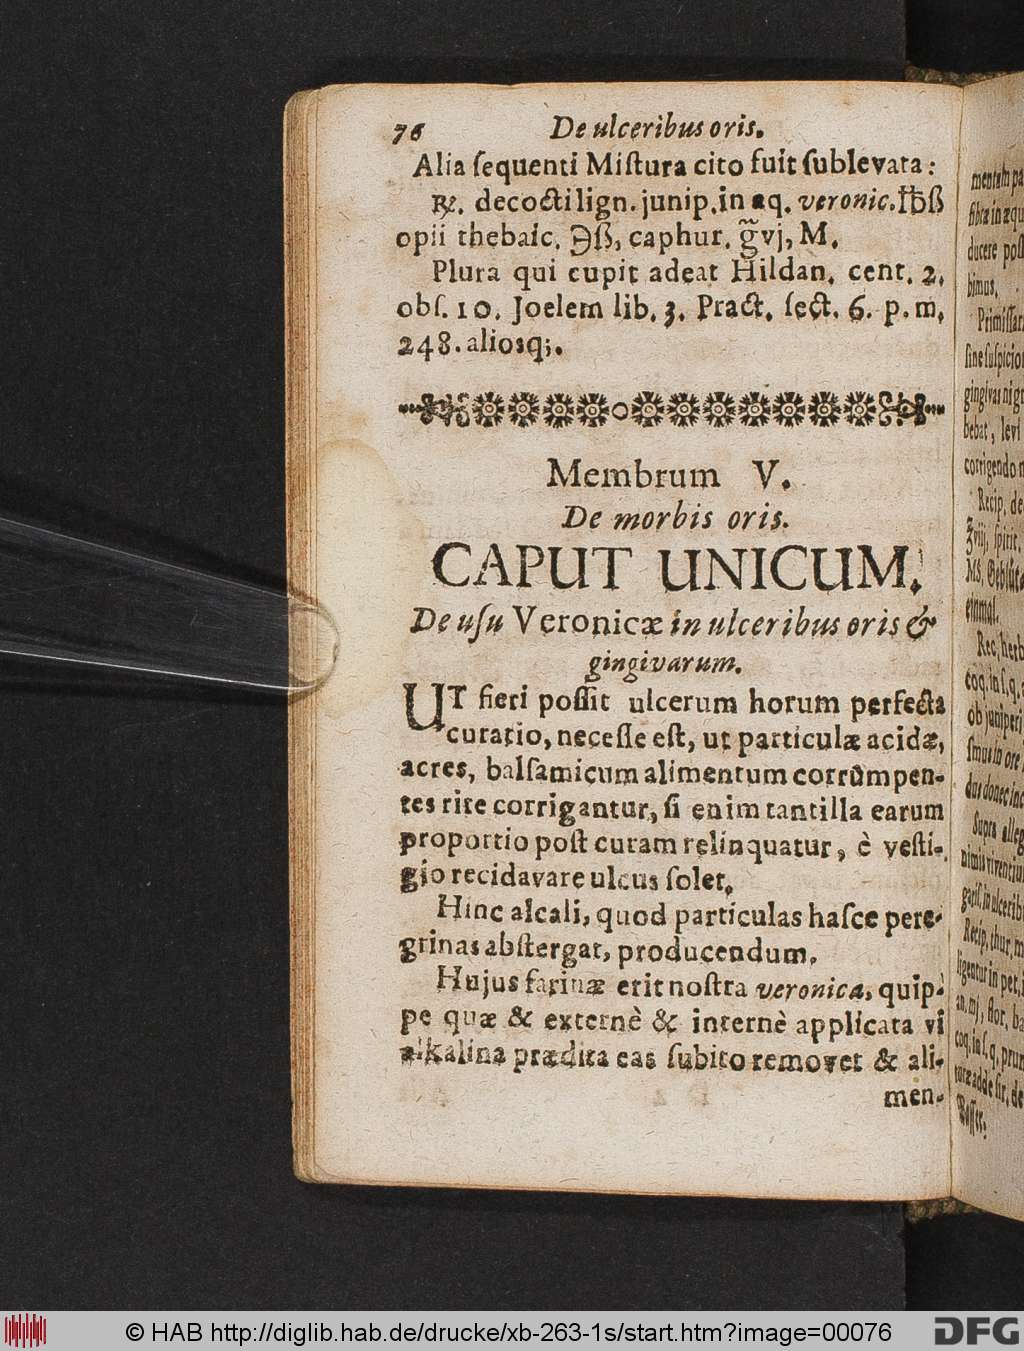 76 De ulceribus oris.
Alia ſequenti Miſtura cito fuit ſublevata:
℞. decocti lign. junip. in aq. veronic. ℔ß
opii thebaic. ℈ß, caphur. g̃vj, M.
Plura qui cupit adeat Hildan. cent. 2.
obſ. 10. Joelem lib. 3. Pract. ſect. 6. p. m.
248. aliosq;.
Membrum V.
De morbis oris.
CAPUT UNICUM.
De uſu Veronicæ in ulceribus oris &
gingivarum.
UT fieri poſſit ulcerum horum perfecta
curatio, neceſſe eſt, ut particulæ acidæ,
acres, balſamicum alimentum corrūmpen-
tes rite corrigantur, ſi enim tantilla earum
proportio poſt curam relinquatur, è veſti-
gio recidavare ulcus ſolet.
Hinc alcali, quod particulas haſce pere-
grinas abſtergat, producendum.
Hujus farinæ erit noſtra veronica, quip-
pe quæ & externè & internè applicata vi
alkalina prædita eas ſubito removet & ali-
men-
mentum
ducere poſſ
bimus.
Primiſſar
ſine ſuſpicio
gingivas nigr
bebat, levi
corrigendo
Recip. de
ʒviij, ſpirit.
einmal.
Rec. herb
coq. in ſ. q.
ob juniperi
ſmus in ore
dus donec inc
Supra alleg
Recip. thur. m
ligentur in pet.
an. mj, flor. ba
coq. in ſ. q. prun
turæ adde ſir. de
Waſſer.
© HAB http://diglib.hab.de/drucke/xb-263-1s/start.htm?image=00076
DFG